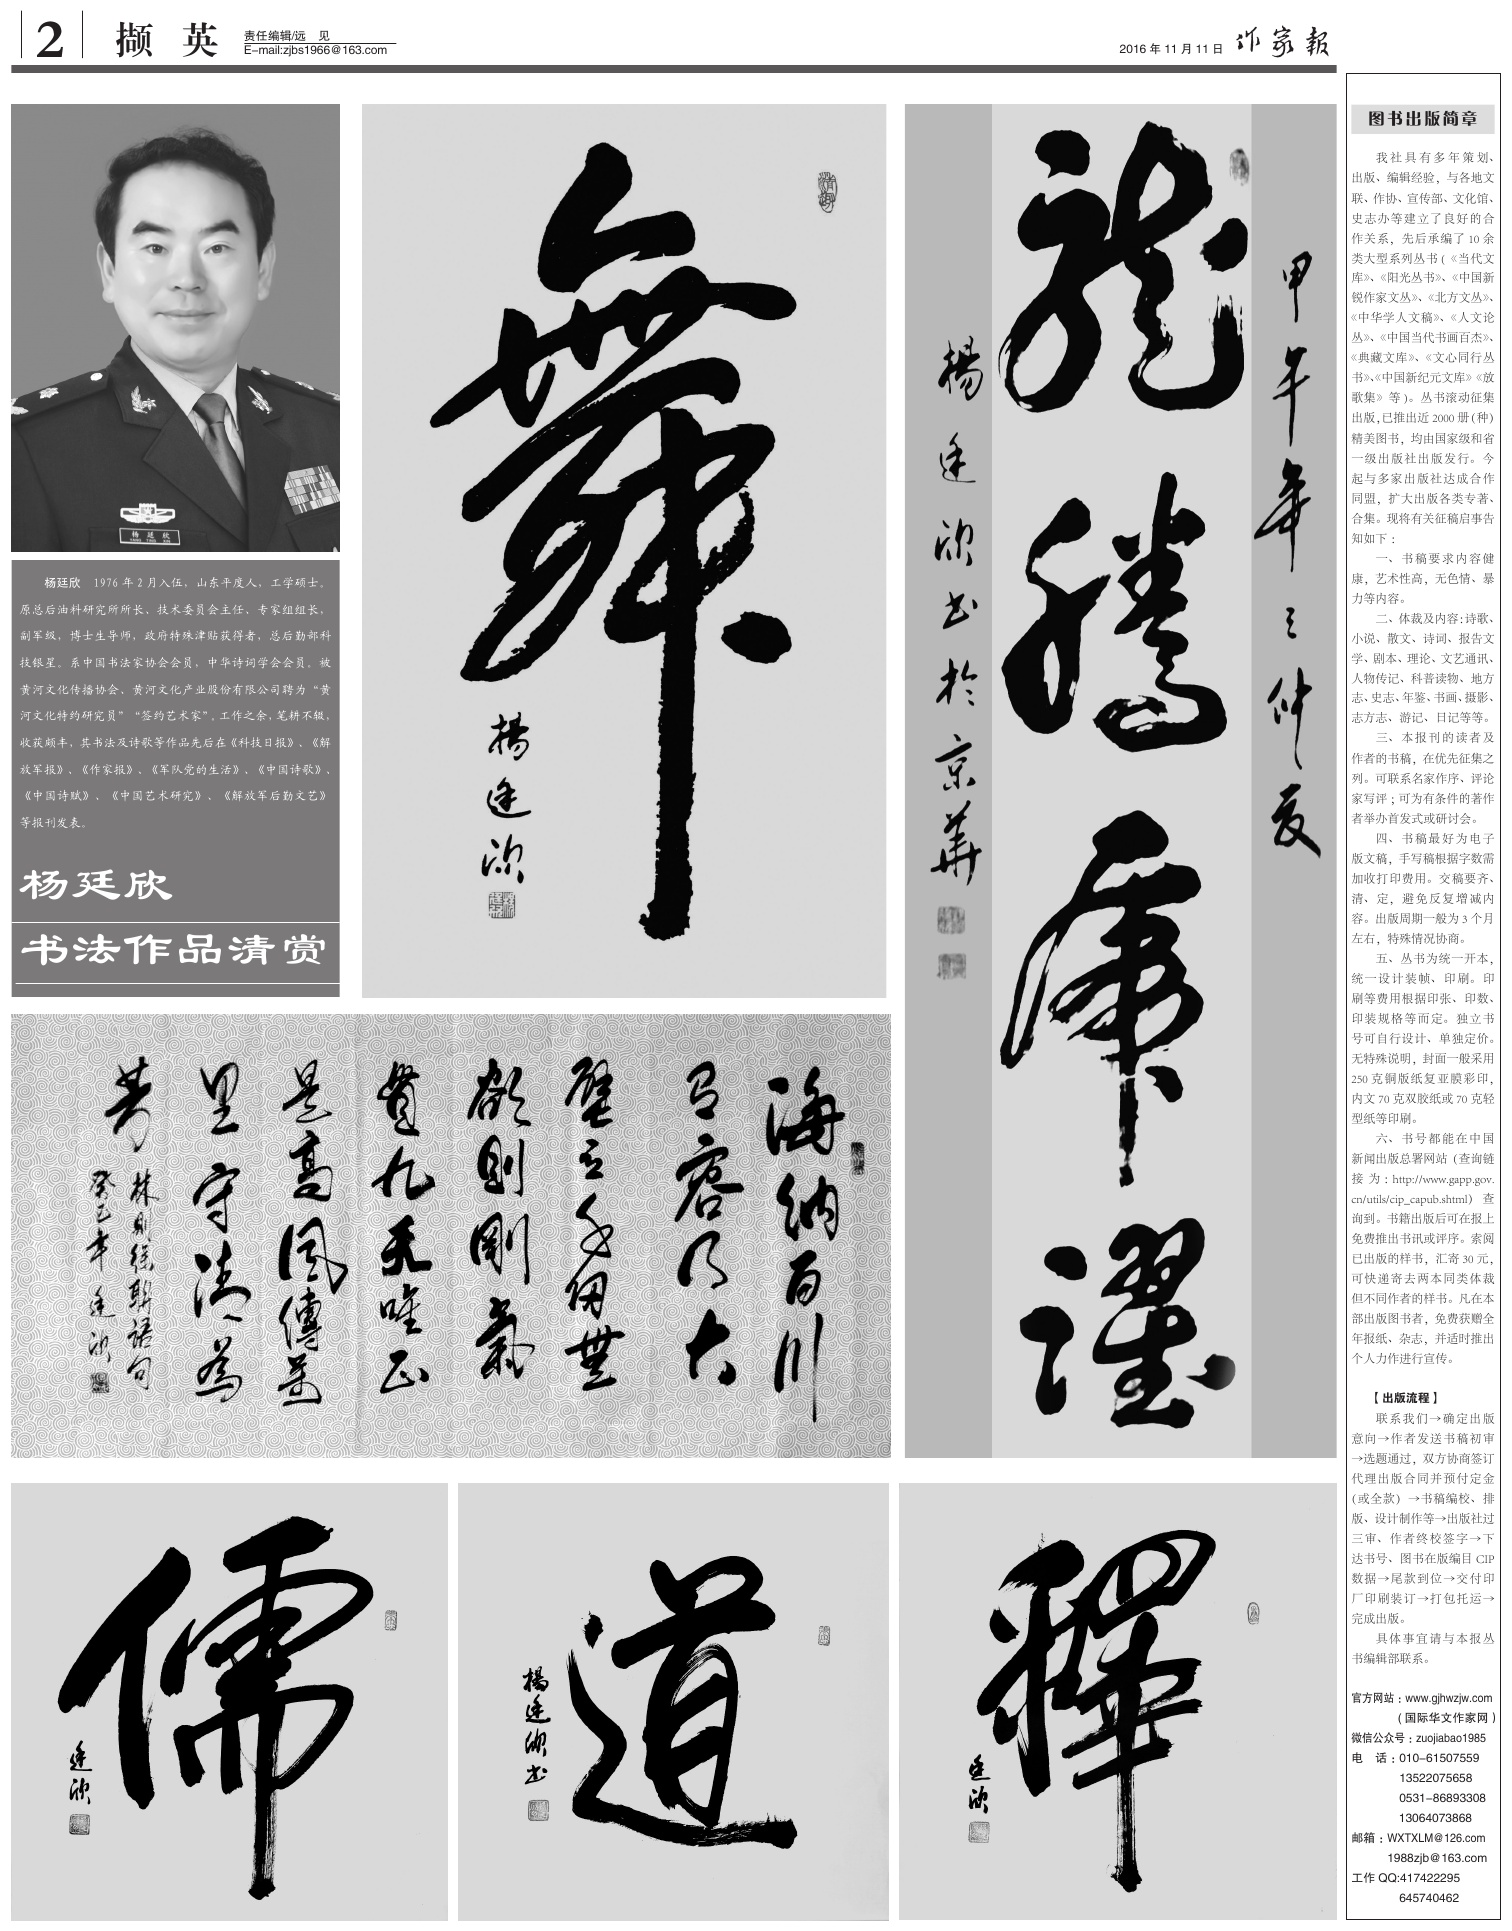 2
撷 英
责任编辑/远 见
E-mail:zjbs1966@163.com
2016 年 11 月 11 日
作家报
杨廷欣 1976 年 2 月入伍，山东平度人，工学硕士。
原总后油料研究所所长、技术委员会主任、专家组组长，
副军级，博士生导师，政府特殊津贴获得者，总后勤部科
技银星。系中国书法家协会会员，中华诗词学会会员。被
黄河文化传播协会、黄河文化产业股份有限公司聘为“黄
河文化特约研究员”“签约艺术家”。工作之余，笔耕不辍，
收获颇丰，其书法及诗歌等作品先后在《科技日报》、《解
放军报》、《作家报》、《军队党的生活》、《中国诗歌》、
《中国诗赋》、《中国艺术研究》、《解放军后勤文艺》
等报刊发表。
杨廷欣
书法作品清赏
杨廷欣
舞
楊廷欣
甲午年
龍騰虎躍
楊廷欣书於京華
海納百川
有容乃大
壁立千仞無
欲則剛氣
貫九天唯正
是高風傳萬
里守清為
林則徐聯語句
癸巳年廷欣
儒
廷欣
道
楊廷欣书
釋
廷欣
图书出版简章
我社具有多年策划、
出版、编辑经验，与各地文
联、作协、宣传部、文化馆、
史志办等建立了良好的合
作关系，先后承编了 10 余
类大型系列丛书（《当代文
库》、《阳光丛书》、《中国新
锐作家文丛》、《北方文丛》、
《中华学人文稿》、《人文论
丛》、《中国当代书画百杰》、
《典藏文库》、《文心同行丛
书》、《中国新纪元文库》《放
歌集》等）。丛书滚动征集
出版，已推出近 2000 册（种）
精美图书，均由国家级和省
一级出版社出版发行。今
起与多家出版社达成合作
同盟，扩大出版各类专著、
合集。现将有关征稿启事告
知如下：
一、书稿要求内容健
康，艺术性高，无色情、暴
力等内容。
二、体裁及内容：诗歌、
小说、散文、诗词、报告文
学、剧本、理论、文艺通讯、
人物传记、科普读物、地方
志、史志、年鉴、书画、摄影、
志方志、游记、日记等等。
三、本报刊的读者及
作者的书稿，在优先征集之
列。可联系名家作序、评论
家写评；可为有条件的著作
者举办首发式或研讨会。
四、书稿最好为电子
版文稿，手写稿根据字数需
加收打印费用。交稿要齐、
清、定，避免反复增减内
容。出版周期一般为 3 个月
左右，特殊情况协商。
五、丛书为统一开本，
统一设计装帧、印刷。印
刷等费用根据印张、印数、
印装规格等而定。独立书
号可自行设计、单独定价。
无特殊说明，封面一般采用
250 克铜版纸复亚膜彩印，
内文 70 克双胶纸或 70 克轻
型纸等印刷。
六、书号都能在中国
新闻出版总署网站（查询链
接为：http://www.gapp.gov.
cn/utils/cip_capub.shtml）查
询到。书籍出版后可在报上
免费推出书讯或评序。索阅
已出版的样书，汇寄 30 元，
可快递寄去两本同类体裁
但不同作者的样书。凡在本
部出版图书者，免费获赠全
年报纸、杂志，并适时推出
个人力作进行宣传。
【出版流程】
联系我们→确定出版
意向→作者发送书稿初审
→选题通过，双方协商签订
代理出版合同并预付定金
（或全款）→书稿编校、排
版、设计制作等→出版社过
三审、作者终校签字→下
达书号、图书在版编目 CIP
数据→尾款到位→交付印
厂印刷装订→打包托运→
完成出版。
具体事宜请与本报丛
书编辑部联系。
官方网站：www.gjhwzjw.com
（国际华文作家网）
微信公众号：zuojiabao1985
电 话：010-61507559
13522075658
0531-86893308
13064073868
邮箱：WXTXLM@126.com
1988zjb@163.com
工作 QQ:417422295
645740462